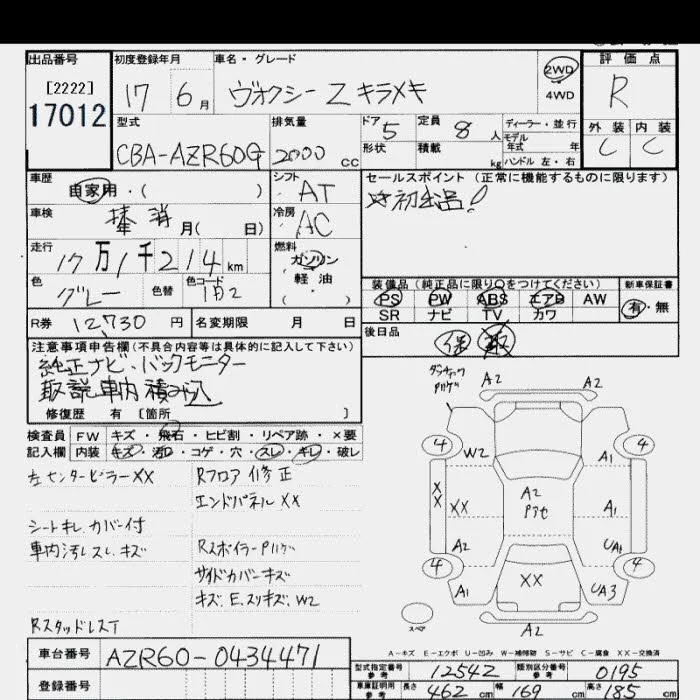 出品番号 初度登録年月 車名・グレード 2WD 4WD 評価点
[2222]
17012
17 6月 ヴォクシー Z キラメキ R
型式 排気量 ドア 5 定員 8人 ディーラー・並行 外装 内装
CBA-AZR60G 2000cc 形状 積載 kg モデル年式 年式 ハンドル 左・右 C C
車歴 シフト セールスポイント (正常に機能するものに限ります)
自家用・( ) AT ☆初出品!
車検 月( 日) 冷房 AC
走行 燃料
17万1千214km ガソリン
色 グレー 色替 色コード 1F2 軽油 ( )
装備品(純正品に限り○をつけてください) 新車保証書
PS PW ABS エアB AW 有・無
SR ナビ TV カワ
R券 12,730円 名変期限 月 日 後日品 保 取
注意事項申告欄(不具合内容等は具体的に記入して下さい)
純正ナビ・バックモニター
取説車内積み込
修復歴 有 [箇所 ]
検査員 FW キズ・飛石・ヒビ割・リペア跡・×要
記入欄 内装 キズ・汚れ・コゲ・穴・スレ・キレ・破レ
左センターピラーXX Rフロア修正
エンドパネルXX
シートキレ.カバー付
車内汚レスレ.キズ Rスポイラー
サイドカバーキズ
キズ.E.スリキズ.W2
RスタッドレスT
A2 A2
4 4
W2 A1
XX XX A2 A1
A2 UA1
4 4
A1 XX UA3
スペア A2
A-キズ E-エクボ U-凹み W-補修跡 S-サビ C-腐食 XX-交換済
車台番号 AZR60-0434471
型式指定番号 参考 12542 類別区分番号 参考 0195
登録番号 車庫証明用 参考 長さ 462cm 幅 169cm 高さ 185cm